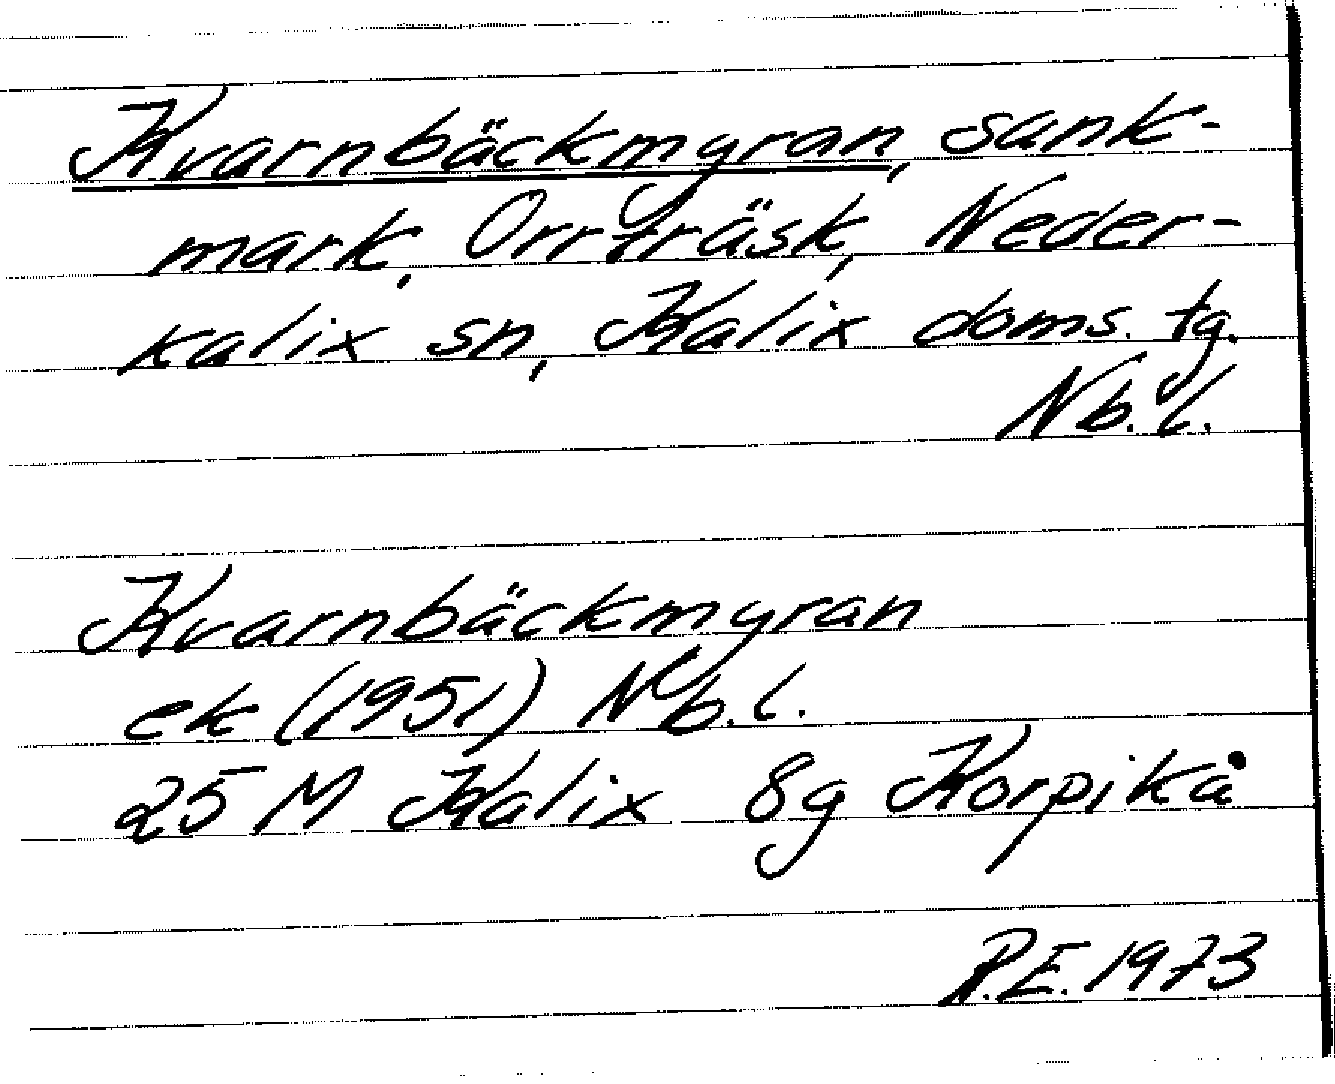 Kvarnbäckmyran, sank-
mark, Orrträsk, Neder-
kalix sn, Kalix doms. tg.
Nb. l.
Kvarnbäckmyran
ek (1951) Nb. l.
25 M Kalix 8g Korpikå
R.E. 1973